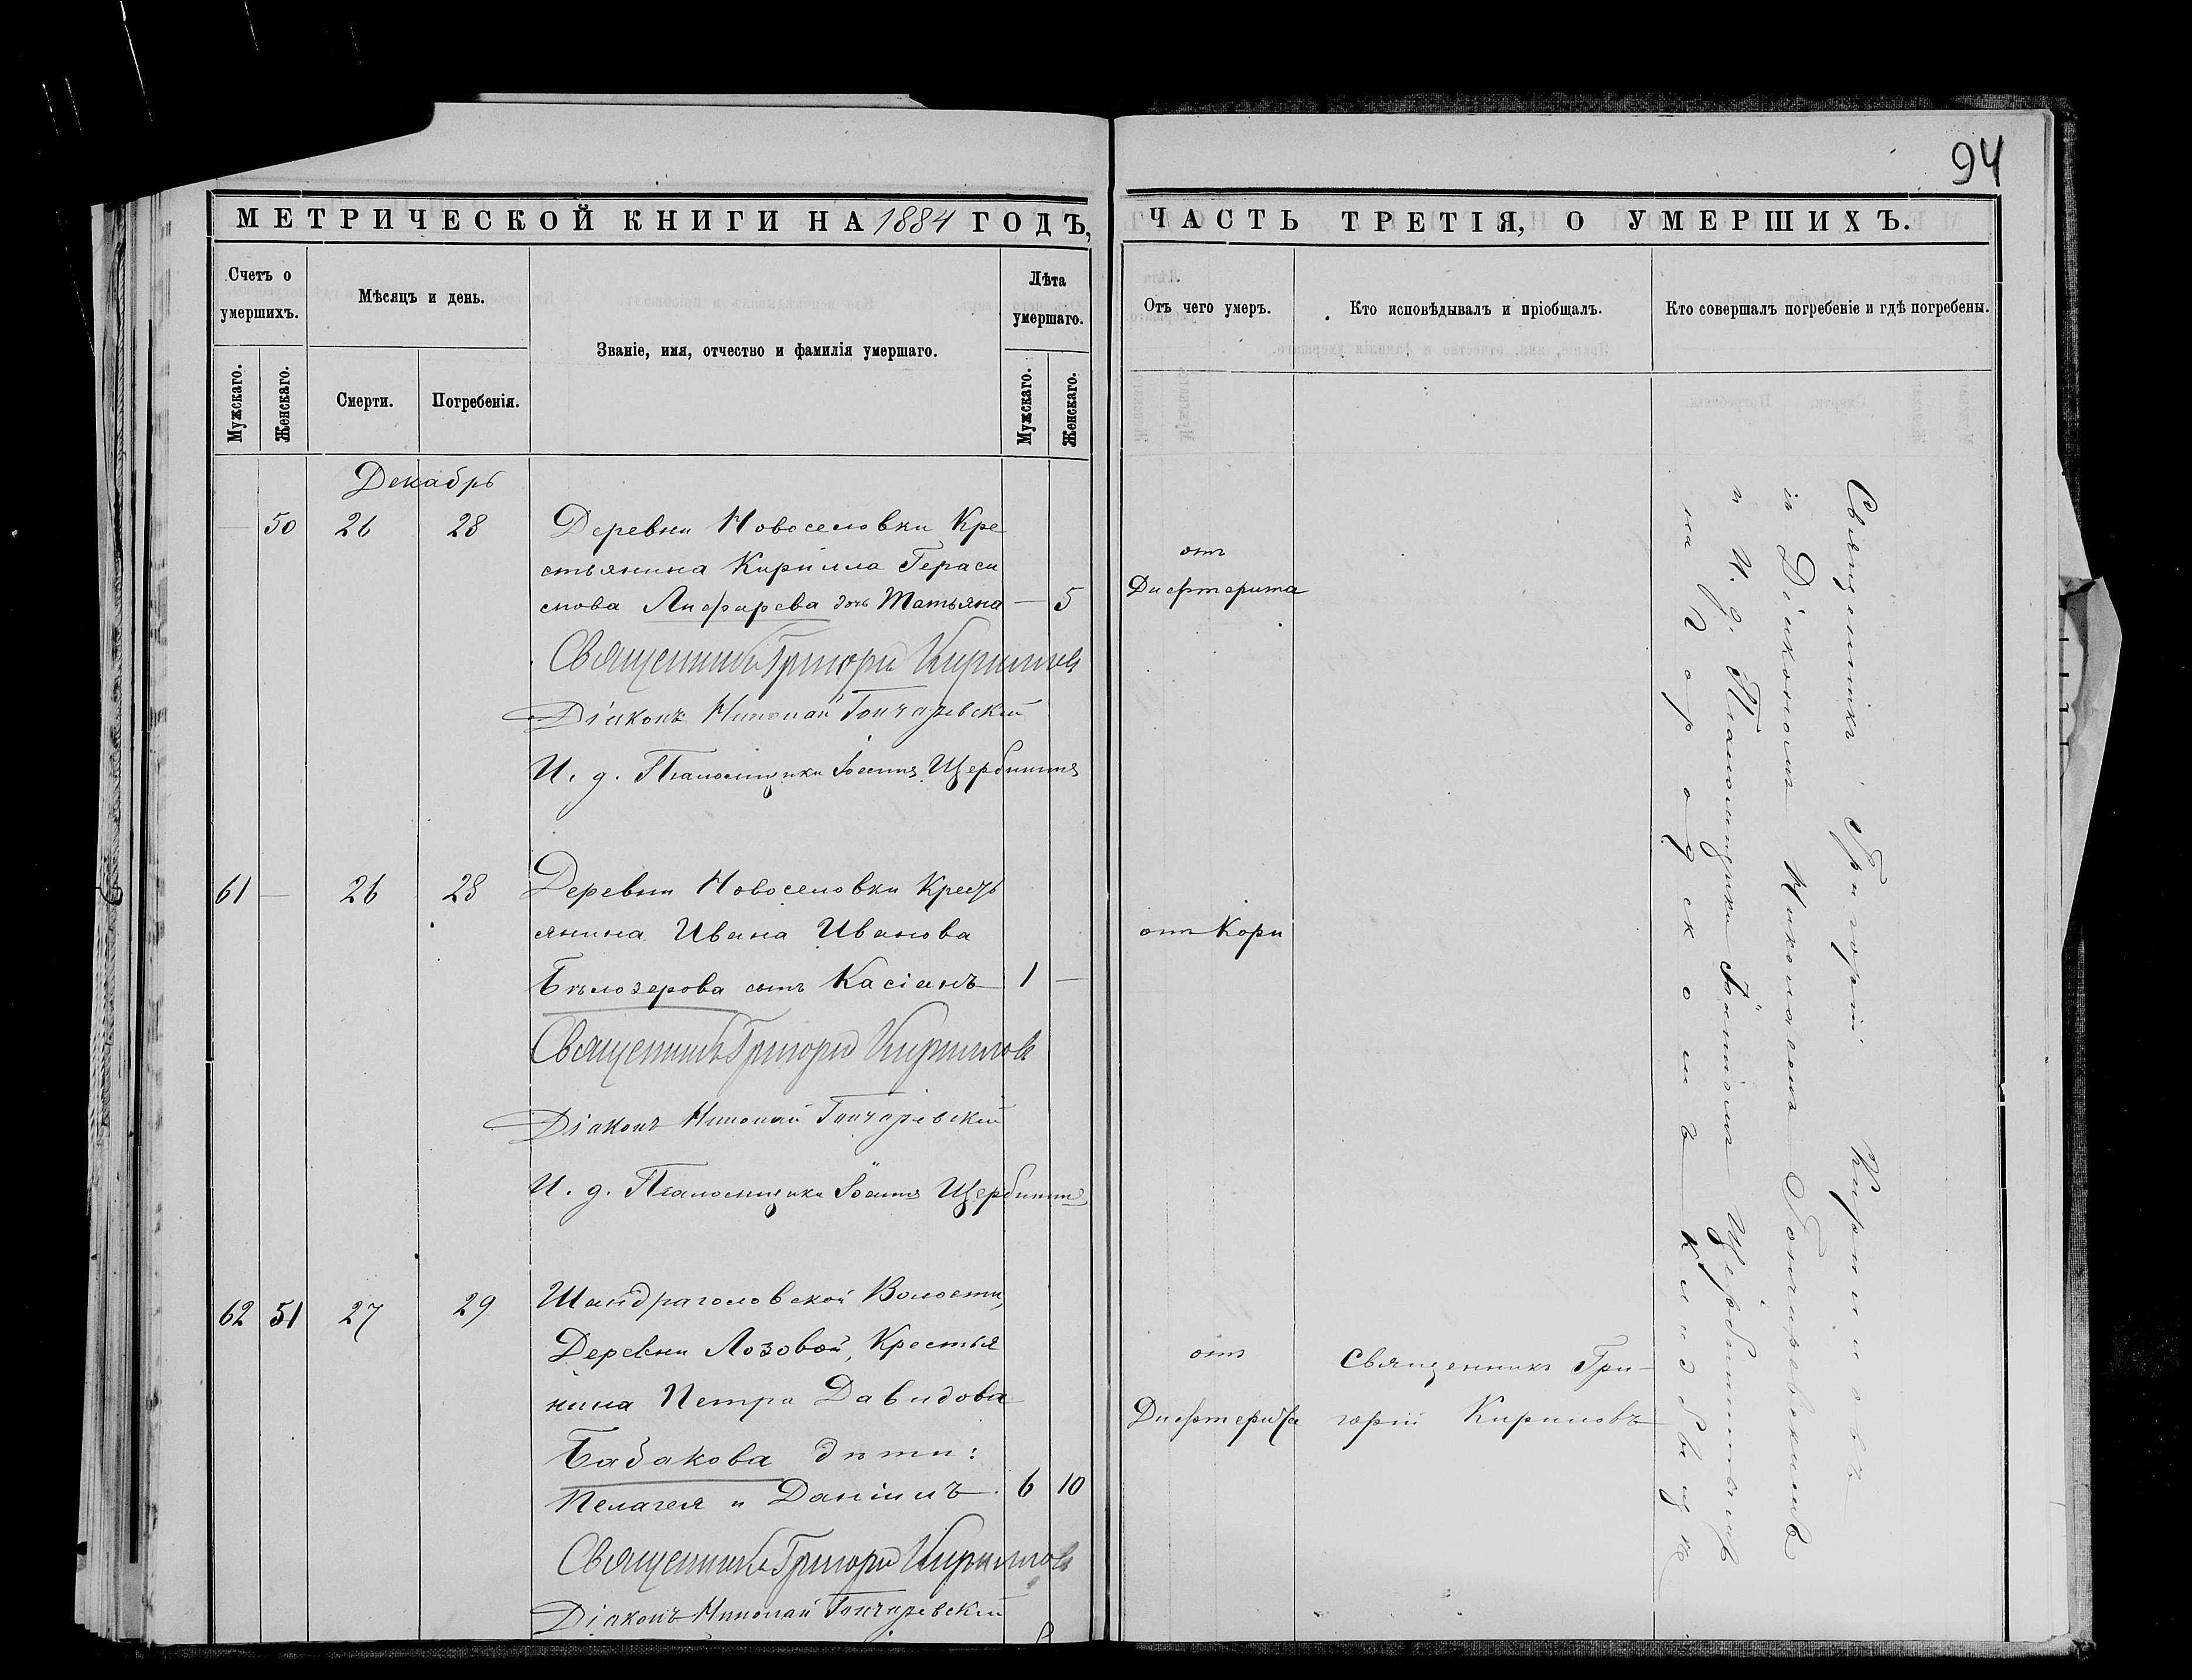 94
МЕТРИЧЕСКОЙ КНИГИ НА 1884 ГОДЪ,
ЧАСТЬ ТРЕТІЯ, О УМЕРШИХЪ.
Счетъ о умершихъ.
Мужскаго.
Женскаго.
Мѣсяцъ и день.
Смерти.
Погребенія.
Званіе, имя, отчество и фамилія умершаго.
Лѣта умершаго.
Мужскаго.
Женскаго.
Отъ чего умеръ.
Кто исповѣдывалъ и пріобщалъ.
Кто совершалъ погребеніе и гдѣ погребены.
Декабрь
— 50 26 28 Деревни Новоселовки Кре
стьянина Кирилла Гераси
мова Лифарева дочь Татьяна — 5
отъ
Дифтерита
Священникъ Григорій Кириловъ
Діаконъ Николай Гончаревскій
И. д. Псаломщика Іоаннъ Щербининъ
61 — 26 28 Деревни Новоселовки Кресть
янина Ивана Иванова
Бѣлозерова сынъ Касіанъ 1 —
отъ Кори
Священникъ Григорій Кириловъ
Діаконъ Николай Гончаревскій
И. д. Псаломщика Іоаннъ Щербининъ
62 51 27 29 Шандраголовской Волости,
Деревни Лозовой, Крестья
нина Петра Давидова
Бабакова дѣти:
Пелагея и Даніилъ 6 10
отъ
Дифтерита
Священникъ Гри-
горій Кириловъ
Священникъ Григорій Кириловъ
Діаконъ Николай Гончаревскій
Священникъ Григорій Кириловъ
съ Діакономъ Николаемъ Гончаревскимъ
и И. д. Псаломщика Іоанномъ Щербининымъ
на Городскомъ Кладбищѣ